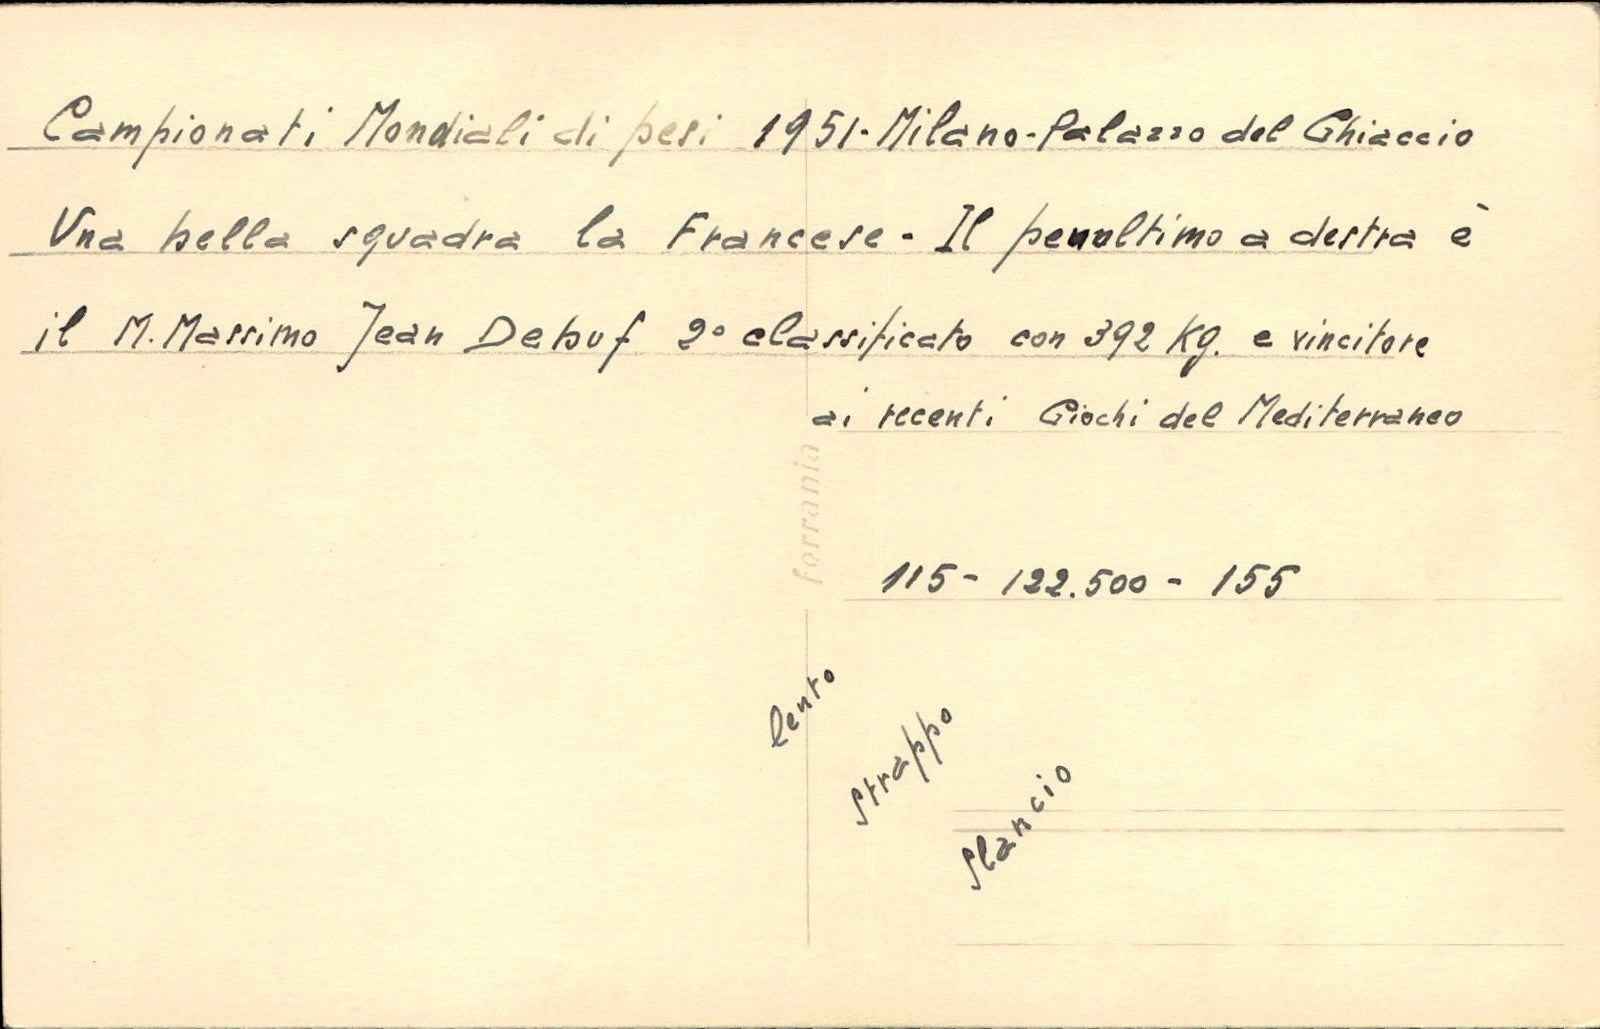 Campionati Mondiali di pesi 1951 - Milano - Palazzo del Ghiaccio
Una bella squadra la Francese - Il penultimo a destra è
il M. Massimo Jean Debuf 2° classificato con 392 Kg. e vincitore
ai recenti Giochi del Mediterraneo
ferrania
115 - 122.500 - 155
lento
strappo
slancio